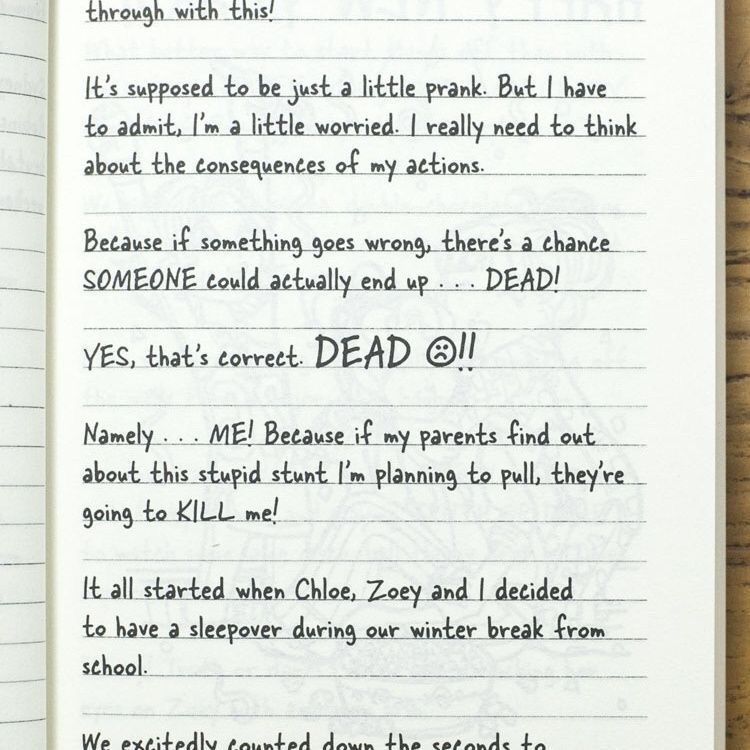 through with this!
It's supposed to be just a little prank. But I have
to admit, I'm a little worried. I really need to think
about the consequences of my actions.
Because if something goes wrong, there's a chance
SOMEONE could actually end up . . . DEAD!
YES, that's correct. DEAD ☹!!
Namely . . . ME! Because if my parents find out
about this stupid stunt I'm planning to pull, they're
going to KILL me!
It all started when Chloe, Zoey and I decided
to have a sleepover during our winter break from
school.
We excitedly counted down the seconds to